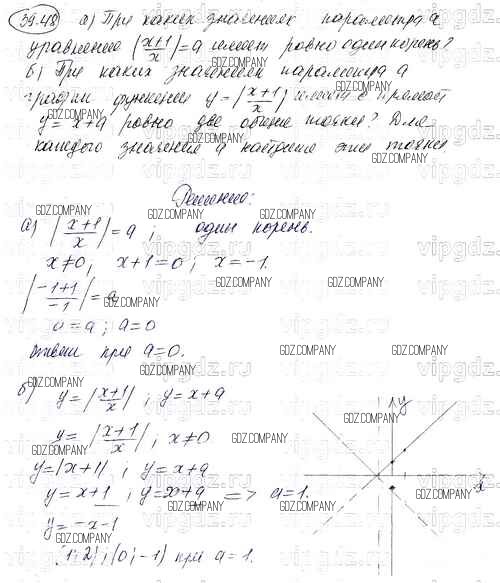 39.48 а) При каких значениях параметра а
уравнение |x+1/x| = a имеет ровно один корень?
б) При каких значениях параметра а
график функции y = |x+1/x| имеет с прямой
y = x+a ровно две общие точки? Для
каждого значения а найдите эти точки
Решение:
а) |x+1/x| = a ; один корень.
x≠0, x+1=0 ; x=-1.
|-1+1/-1| = a
0=a ; a=0
ответ при a=0.
б) y = |x+1/x| ; y = x+a
y = |x+1/x| ; x≠0
y = |x+1| ; y = x+a
y = x+1 ; y = x+a => a=1.
y = -x-1
(1; 2) ; (0; -1) при a=1.
y
x
GDZ.COMPANY
vipgdz.ru